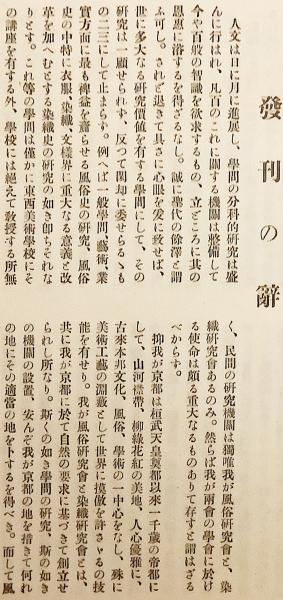 發刊の辭
人文は日に月に進展し、學問の分科的硏究は盛
んに行はれ、凡百のこれに關する機關は整備して
今や百般の智識を欲求するもの、立どころに其の
恩惠に浴するを得ざるなし。誠に聖代の餘澤と謂
ふ可し。されど退きて具さに心眼を爰に致せば、
世に多大なる硏究價値を有する學問にして、その
硏究は一顧せられず、反つて閑却に委せらるゝも
の二三にして止まらず。例へば一般學問、藝術、業
實方面に最も裨益を齎らせる風俗史の硏究、風俗
史の中特に衣服、染織、文樣界に重大なる意義と改
革を加へむとする染織史の硏究の如き卽ちそれな
りとす。これ等の學問は僅かに東西美術學校にそ
の講座を有する外、學校には絕えて敎授する所無
く、民間の硏究機關は獨唯我が風俗硏究會と、染
織硏究會あるのみ。然らば我が兩會の學會に於け
る使命は頗る重大なるものあつて存すと謂はざる
べからず。
抑我が京都は桓武天皇奠都以來一千歲の帝都に
して、山河襟帶、柳綠花紅の美地、人心優雅に、
古來本邦文化、風俗、學術の一中心をなし、殊に
美術工藝の淵藪として世界に摸倣を許さゞるの技
能を有せり。我が風俗硏究會と染織硏究會とは、
共に我が京都に於て自然の要求に基づきて創立せ
られし所なり。斯くの如き學問の硏究、斯の如き
の機關の設置、安んぞ我が京都の地を措きて何れ
の地にその適當の地を卜するを得べき。而して風